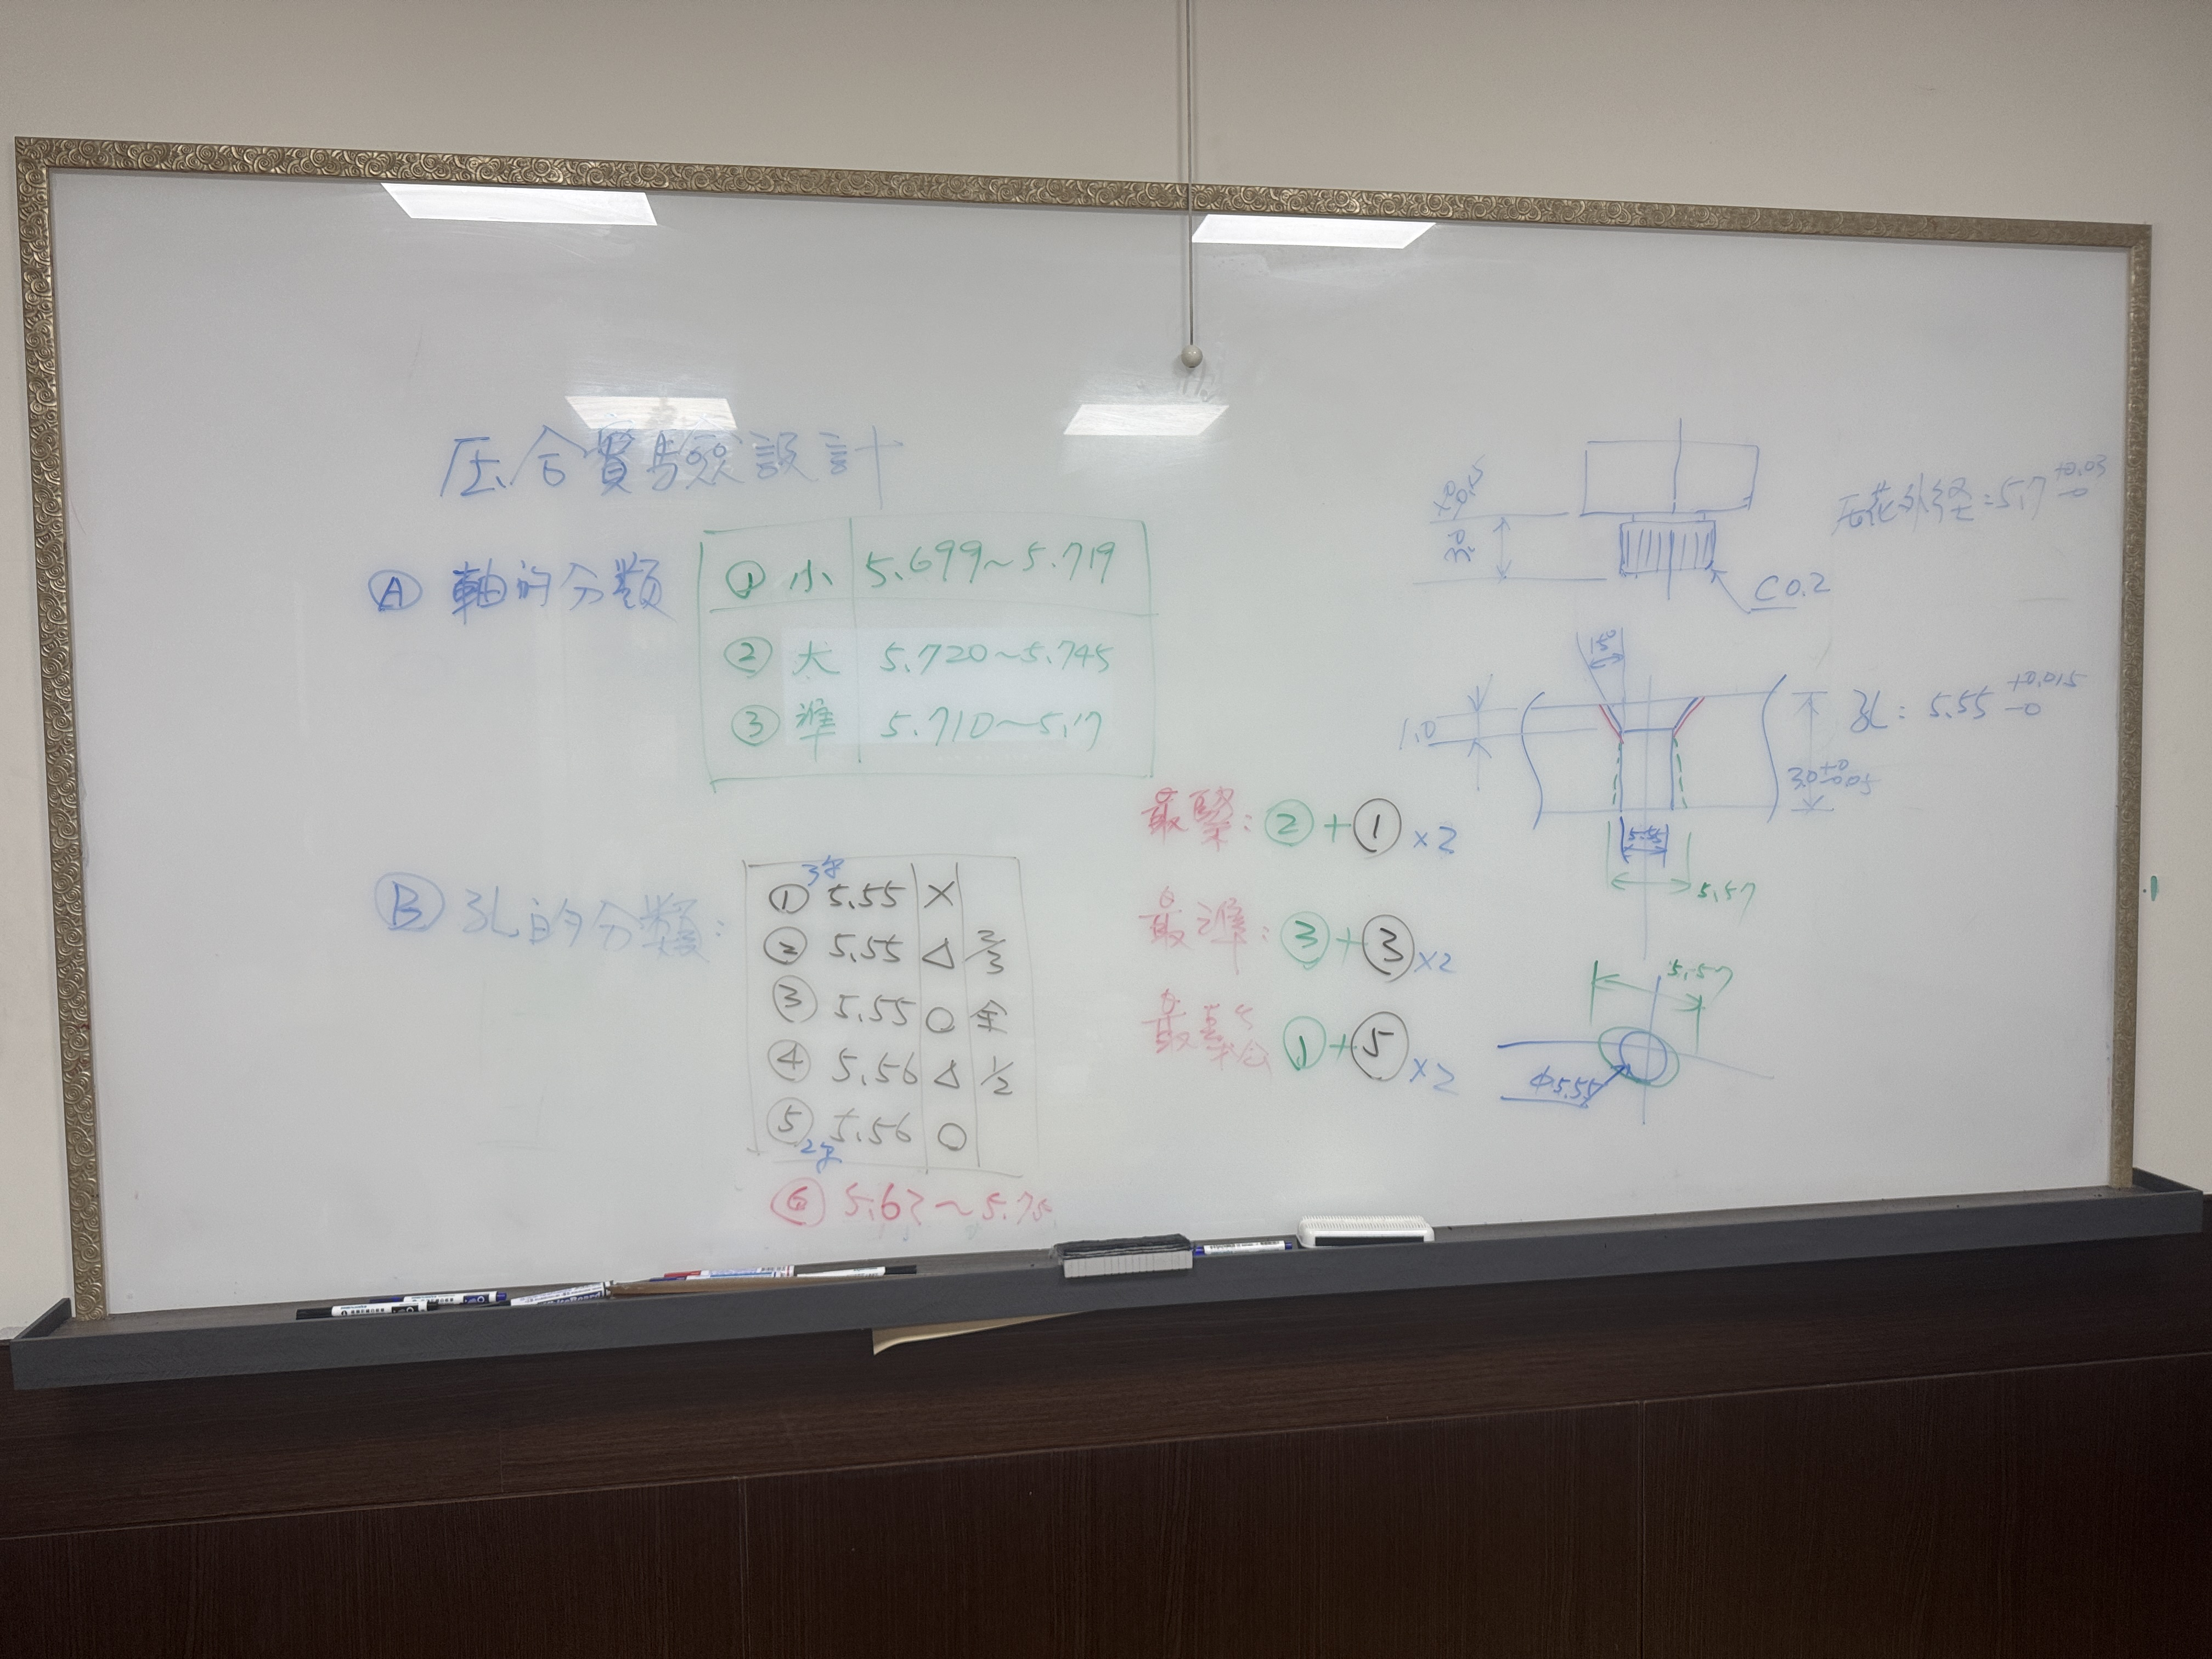 压合實驗設計
Ⓐ 軸的分類
① 小 5.699~5.719
② 大 5.720~5.745
③ 準 5.710~5.17
Ⓑ 孔的分類:
① 5.55 X
② 5.55 △ 2/3
③ 5.55 ○ 全
④ 5.56 △ 1/2
⑤ 5.56 ○
⑥ 5.62~5.75
最緊: ②+① ×2
最準: ③+③ ×2
最鬆 ①+⑤ ×2
压花外径=5.7 +0.03 -0
3.0
C0.2
15°
1.0
孔: 5.55 +0.015 -0
3.0 +0 -0.05
5.55
5.57
5.57
Φ5.55